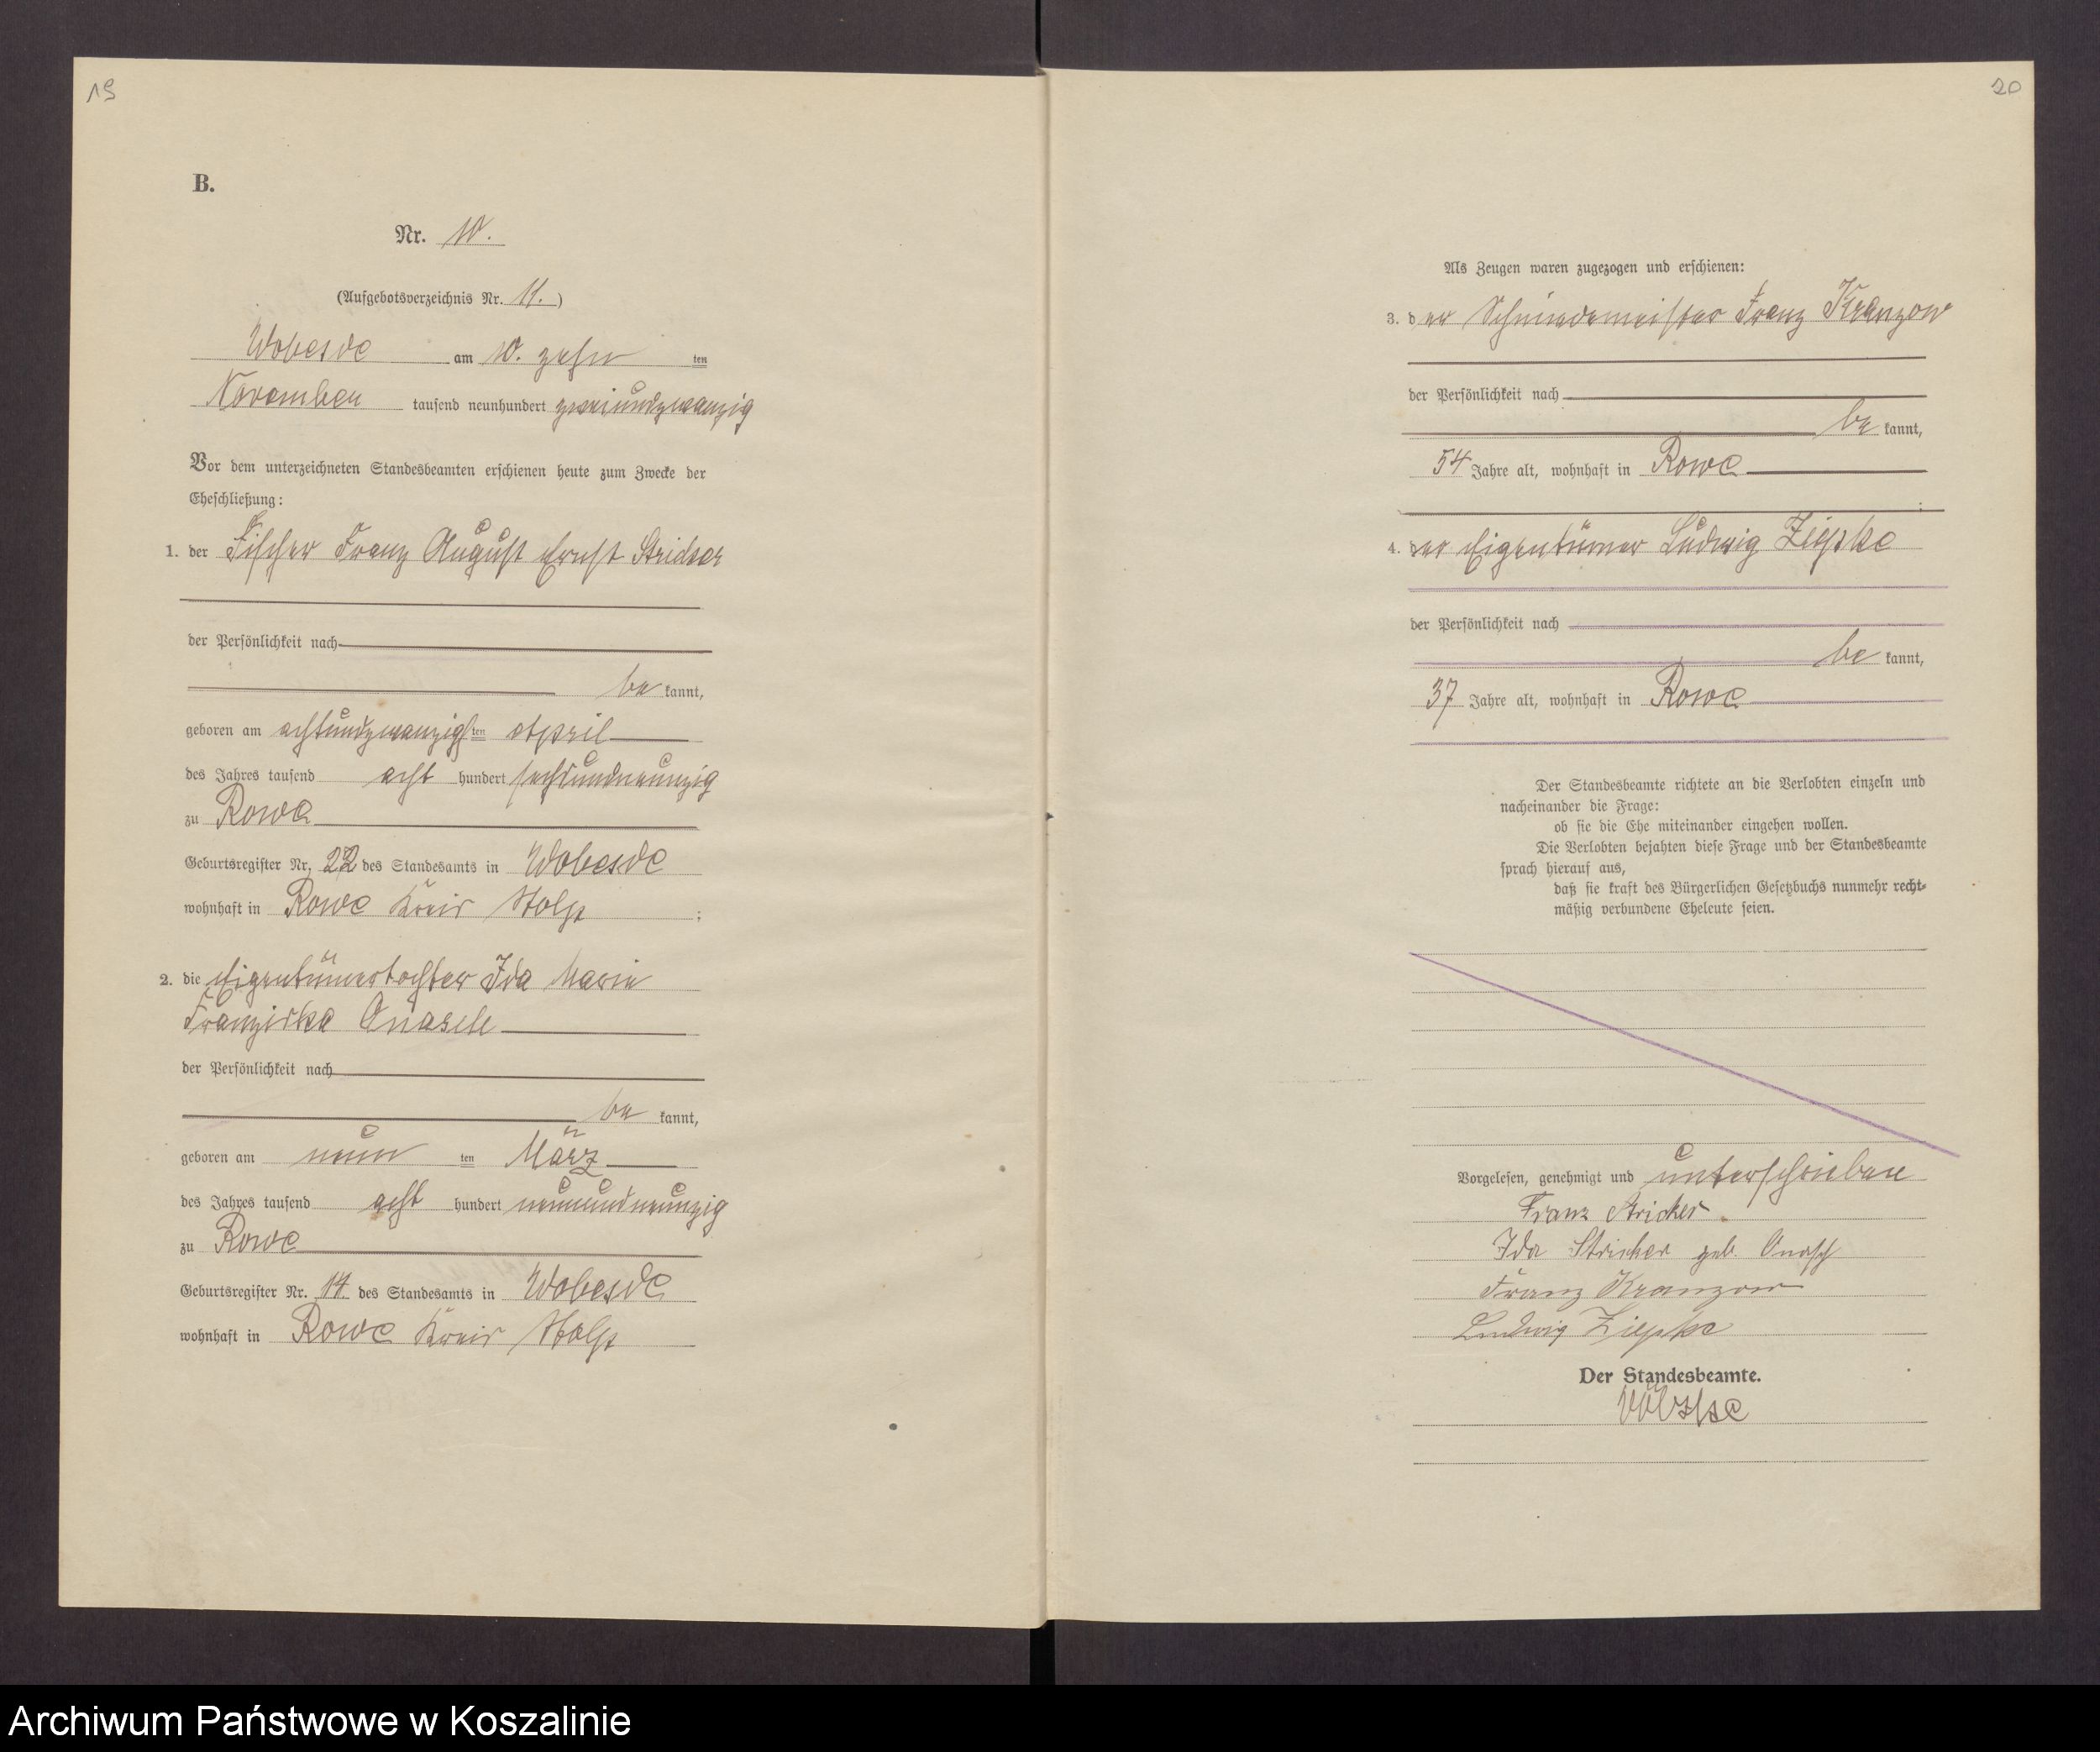 19
B.
Nr. 10.
(Aufgebotsverzeichnis Nr. 11.)
Wobesde am 10. zehn ten
November tausend neunhundert zweiundzwanzig
Vor dem unterzeichneten Standesbeamten erschienen heute zum Zwecke der
Eheschließung:
1. der Fischer Franz August Ernst Stricker
der Persönlichkeit nach
be kannt,
geboren am achtundzwanzigsten April
des Jahres tausend acht hundert sechsundneunzig
zu Rowe
Geburtsregister Nr. 22 des Standesamts in Wobesde
wohnhaft in Rowe Kreis Stolp ;
2. die Eigentümertochter Ida Marie
Franziska
der Persönlichkeit nach
be kannt,
geboren am neun ten März
des Jahres tausend acht hundert neunundneunzig
zu Rowe
Geburtsregister Nr. 14 des Standesamts in Wobesde
wohnhaft in Rowe Kreis Stolp
20
Als Zeugen waren zugezogen und erschienen:
3. der Schmiedemeister Franz Kranzow
der Persönlichkeit nach
be kannt,
54 Jahre alt, wohnhaft in Rowe
;
4. der Eigentümer Ludwig Ziepke
der Persönlichkeit nach
be kannt,
37 Jahre alt, wohnhaft in Rowe
Der Standesbeamte richtete an die Verlobten einzeln und
nacheinander die Frage:
ob sie die Ehe miteinander eingehen wollen.
Die Verlobten bejahten diese Frage und der Standesbeamte
sprach hierauf aus,
daß sie kraft des Bürgerlichen Gesetzbuchs nunmehr recht-
mäßig verbundene Eheleute seien.
Vorgelesen, genehmigt und unterschrieben
Franz Stricker
Ida Stricker geb. Onasch
Franz Kranzow
Ludwig Ziepke
Der Standesbeamte.
Archiwum Państwowe w Koszalinie